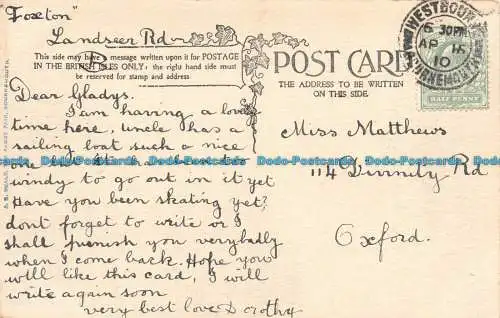 "Foxton"
Landseer Rd
This side may have a message written upon it for POSTAGE
IN THE BRITISH ISLES ONLY; the right hand side must
be reserved for stamp and address
POST CARD
THE ADDRESS TO BE WRITTEN
ON THIS SIDE.
WESTBOURNE
6 30PM
AP 15
10
BOURNEMOUTH
HALF PENNY
Dear Gladys.
I am having a lovely
time here, uncle has a
sailing boat such a nice
one but it has been to
windy to go out in it yet
Have you been skating yet?
dont forget to write or I
shall punish you verybadly
when I come back. Hope you
will like this card, I will
write again soon
very best love Dorothy
Miss Matthews
114 Divinity Rd
Oxford.
Dodo-Postcards